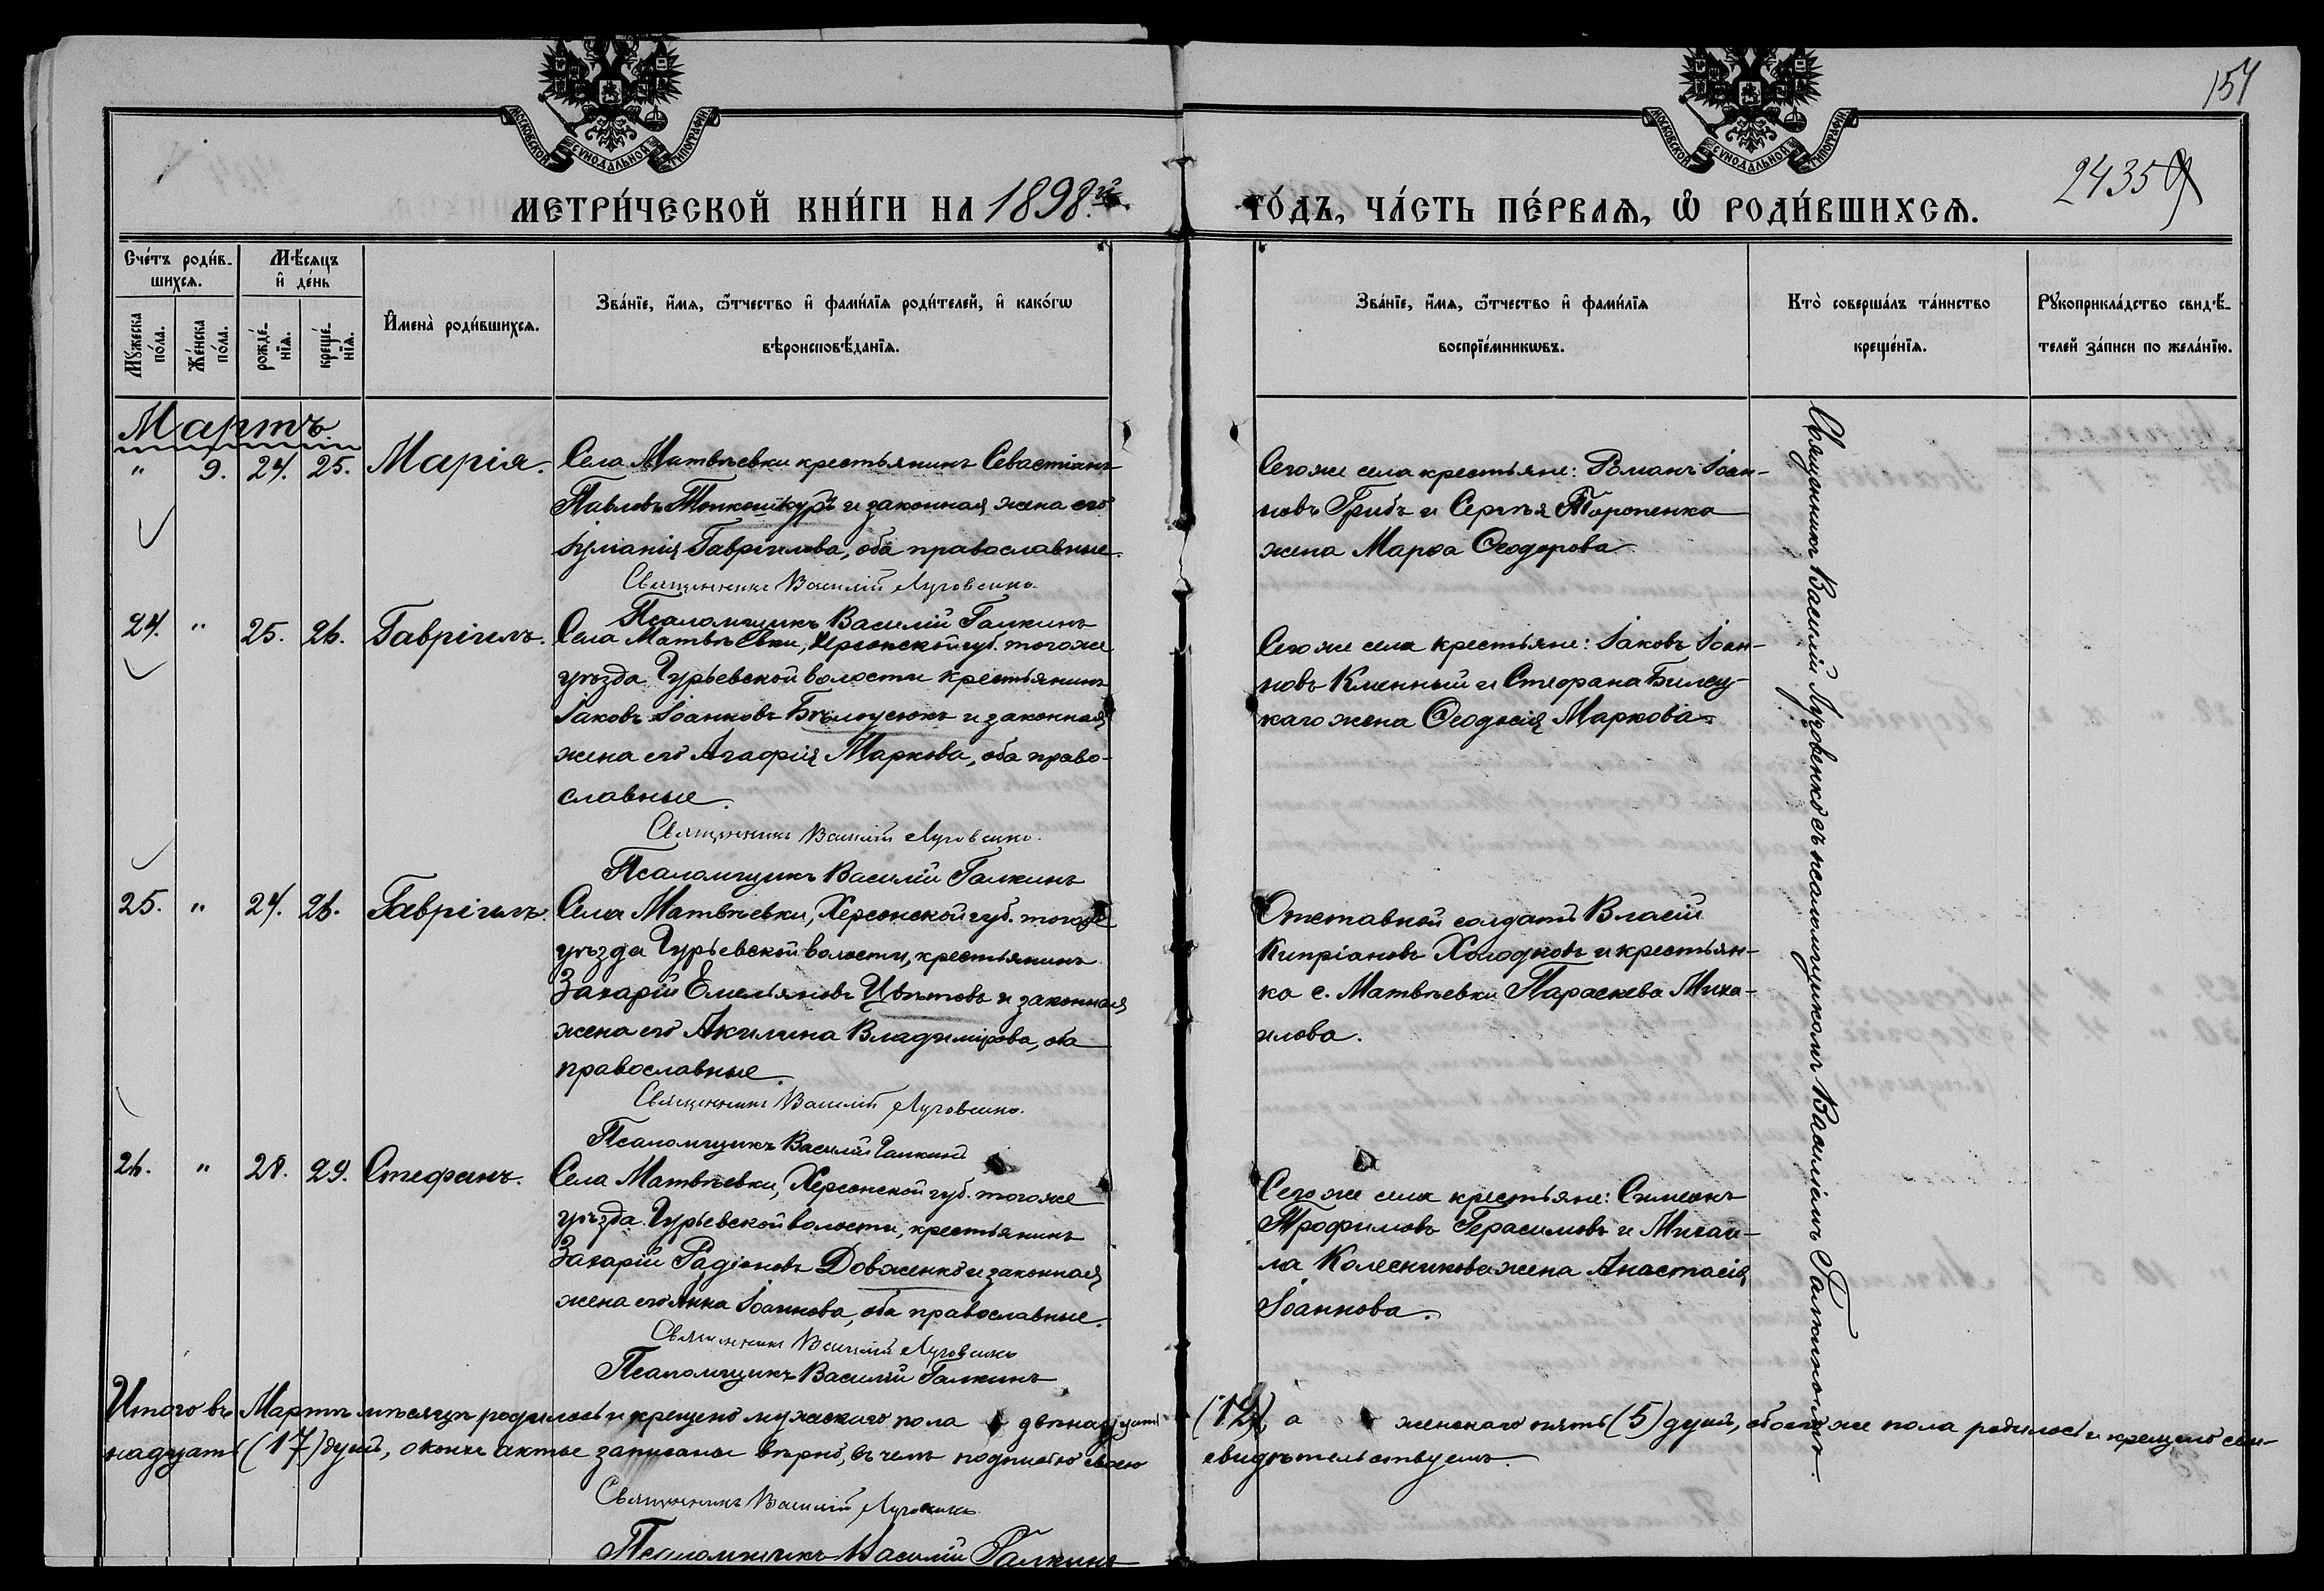 МОСКОВСКОЙ СѴНОДАЛЬНОЙ ТИПОГРАФІИ
МОСКОВСКОЙ СѴНОДАЛЬНОЙ ТИПОГРАФІИ
154
2435
МЕТРИ́ЧЕСКОЙ КНИ́ГИ НА 1898.й
ГО́ДЪ, ЧА́СТЬ ПЕ́РВАѦ, Ѽ РОДИ́ВШИХСѦ.
Сче́тъ роди́в-
шихсѧ.
Мꙋ́жеска по́ла.
Же́нска по́ла.
Мѣ́сѧцъ
и҆ де́нь
рожде́-
нїѧ.
креще́-
нїѧ.
И҆мена̀ роди́вшихсѧ.
Зва́нїе, и҆́мѧ, ѻ҆́тчество и҆ фами́лїѧ роди́телей, и҆ како́гѡ
вѣроисповѣ́данїѧ.
Зва́нїе, и҆́мѧ, ѻ҆́тчество и҆ фами́лїѧ
воспрїе́мникѡвъ.
Кто̀ соверша́лъ та́инство
креще́нїѧ.
Рꙋкоприкла́дство свидѣ́-
телей за́писи по жела́нїю.
Мартъ.
" 9. 24. 25. Марія.
Села Матвѣевки крестьянинъ Севастіанъ
Павловъ Тонкошкуръ и законная жена его
Іуліанія Гавріилова, оба православные.
Священникъ Василій Луговенко.
Псаломщикъ Василій Галкинъ
Сего же села крестьяне: Романъ Іоан-
новъ Грибъ и Сергѣя Торопенка
жена Марѳа Ѳеодорова.
24. " 25. 26. Гавріилъ.
Села Матвѣевки, Херсонской губ. того же
уѣзда Гурьевской волости крестьянинъ
Іаковъ Іоанновъ Бѣлоусюкъ и законная
жена его Агафія Маркова, оба право-
славные.
Священникъ Василій Луговенко.
Псаломщикъ Василій Галкинъ
Сего же села крестьяне: Іаковъ Іоан-
новъ и Стефана Билец-
каго жена Ѳеодосія Маркова.
25. " 24. 26. Гавріилъ.
Села Матвѣевки, Херсонской губ. того же
уѣзда Гурьевской волости, крестьянинъ
Захарій Емельяновъ Цвѣтовъ и законная
жена его Акилина Владимірова, оба
православные.
Священникъ Василій Луговенко.
Псаломщикъ Василій Галкинъ
Отставной солдатъ Власій
Кипріановъ Холодковъ и крестьян-
ка с. Матвѣевки Параскева Миха-
илова.
26. " 28. 29. Стефанъ.
Села Матвѣевки, Херсонской губ. того же
уѣзда Гурьевской волости, крестьянинъ
Захарій Радіоновъ Довженко и законная
жена его Анна Іоаннова, оба православные.
Священникъ Василій Луговенко
Псаломщикъ Василій Галкинъ
Сего же села крестьяне: Симеонъ
Трофимовъ Герасимовъ и Михаи-
ла Колесникова жена Анастасія
Іоаннова.
Священникъ Василій Луговенко съ псаломщикомъ Василіемъ Галкинымъ.
Итого въ Мартѣ мѣсяцѣ родилось и крещено мужескаго пола двѣнадцать (12), а женскаго пять (5) душъ, обоего же пола родилось и крещено сем-
надцать (17) душъ, о коихъ актые записаны вѣрно, въ чемъ подписью своею свидѣтельствуемъ.
Священникъ Василій Луговенко
Псаломщикъ Василій Галкинъ